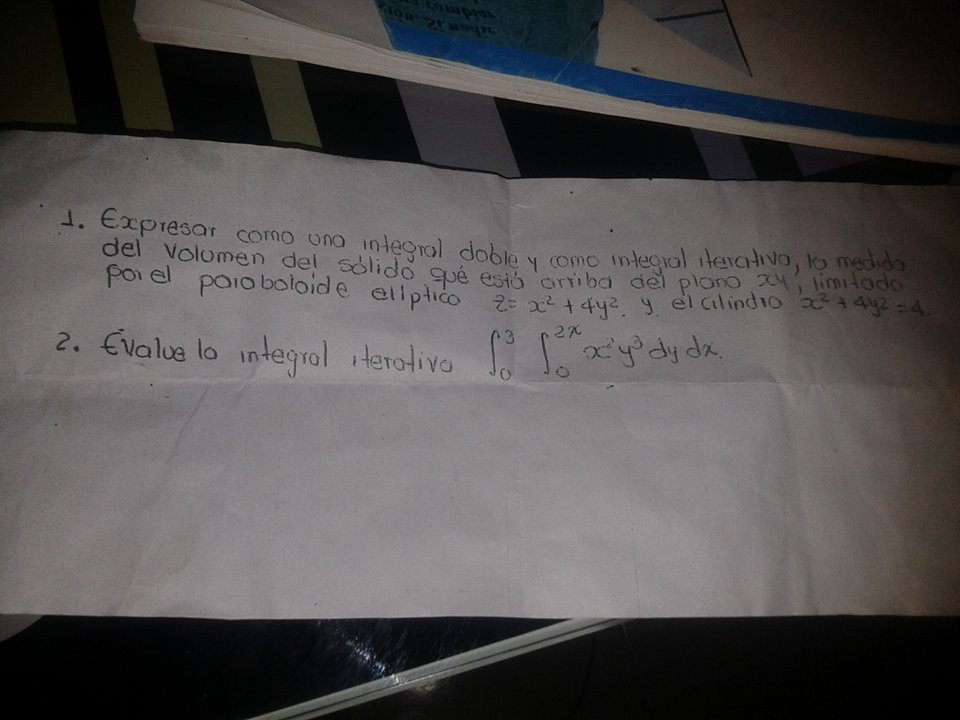 1. Expresar como una integral doble y como integral iterativa, la medida
del volumen del sólido qué está arriba del plano xy, limitado
por el paraboloide elíptico z= x² + 4y². y el cilindro x² + 4y² = 4.
2. Evalue la integral iterativa ∫₀³ ∫₀²ˣ x²y³ dy dx.